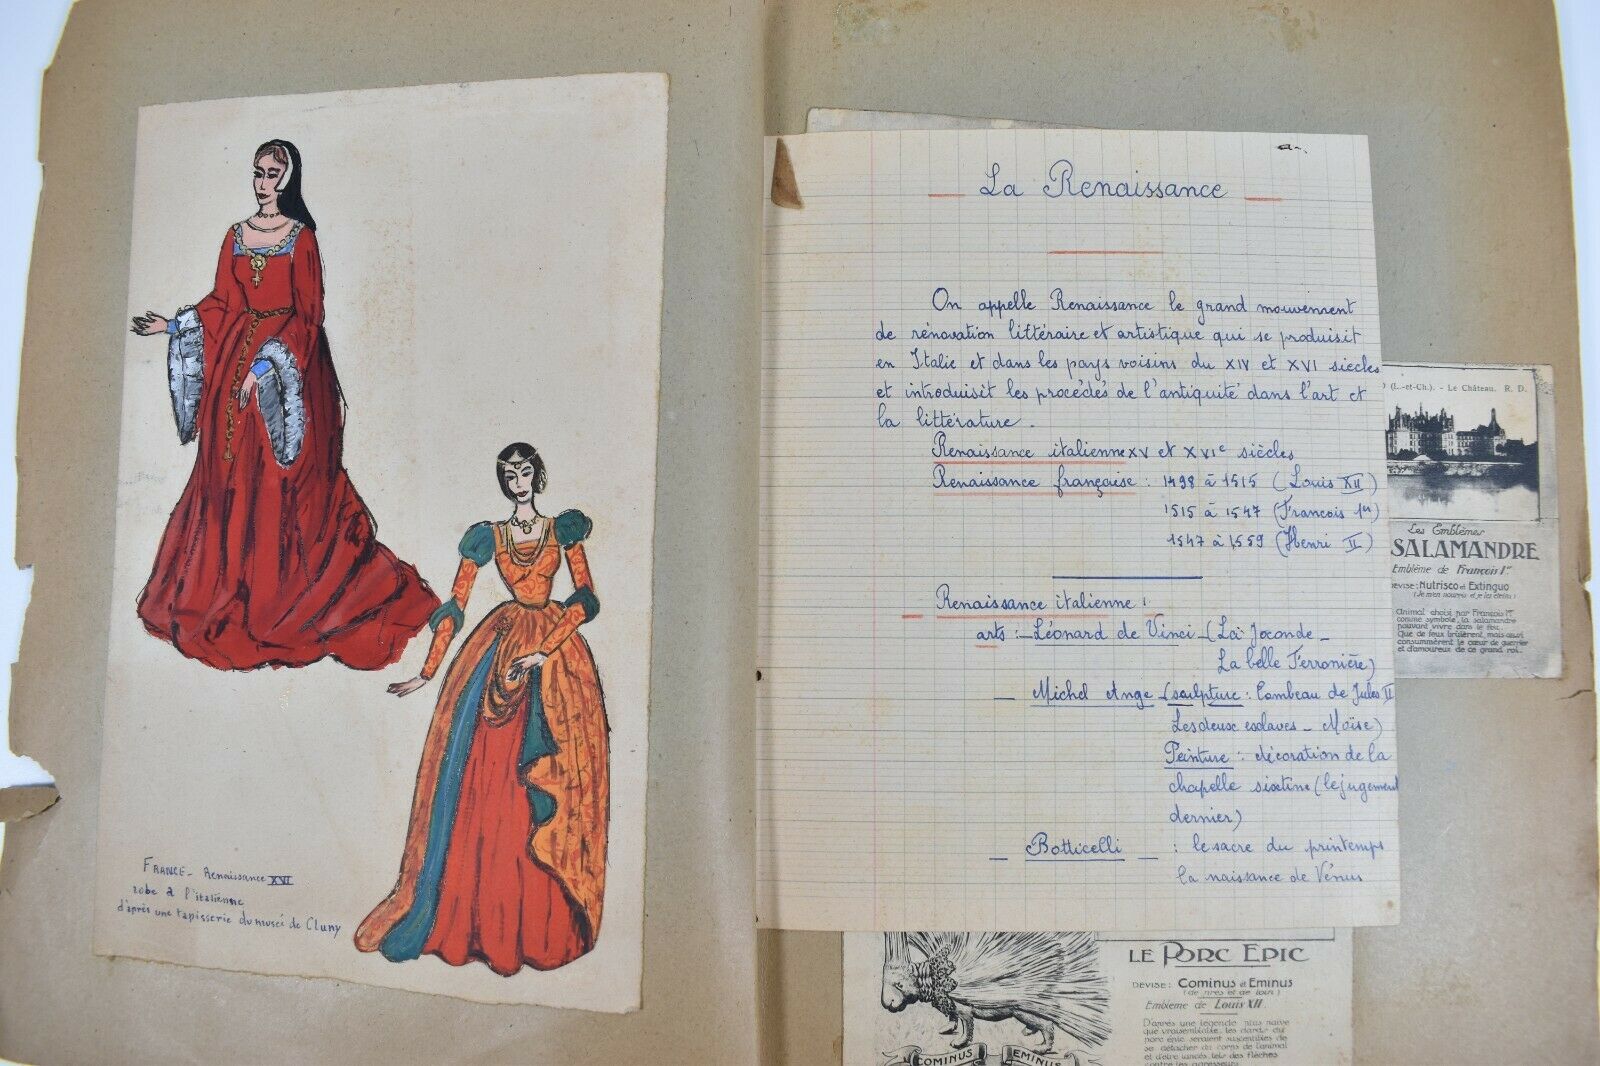 FRANCE - Renaissance XVI
robe a l'italienne
d'après une tapisserie du musée de Cluny
La Renaissance
On appelle Renaissance le grand mouvement
de rénovation littéraire et artistique qui se produisit
en Italie et dans les pays voisins du XIV et XVI siècles
et introduisit les procédés de l'antiquité dans l'art et
la littérature.
Renaissance italienne XV et XVIe siècles
Renaissance française : 1498 à 1515 (Louis XII)
1515 à 1547 (Francois 1er)
1547 à 1559 (Henri II)
Renaissance italienne :
arts : - Léonard de Vinci - (La Joconde -
La belle Ferronière)
- Michel Ange - (sculpture : Tombeau de Jules II
Les deux esclaves - Moïse)
Peinture : décoration de la
chapelle sixtine (le jugement
dernier)
- Botticelli - : le sacre du printemps
la naissance de Vénus
(L.-et-Ch.). - Le Château. R. D.
Les Emblèmes
SALAMANDRE
Emblème de François Ier
DEVISE : Nutrisco et Extinguo
(Je m'en nourris et je les éteins)
Animal choisi par François Ier
comme symbole, la salamandre
pouvant vivre dans le feu.
Que de feux brûlèrent, mais aussi
consummèrent le cœur de guerrier
et d'amoureux de ce grand roi.
LE PORC EPIC
DEVISE : Cominus et Eminus
(de près et de loin)
Emblème de Louis XII
D'après une légende plus naïve
que vraisemblable, les dards du
porc épic seraient susceptibles de
se détacher du corps de l'animal
et d'être lancés tels des flèches
contre les agresseurs.
COMINUS EMINUS